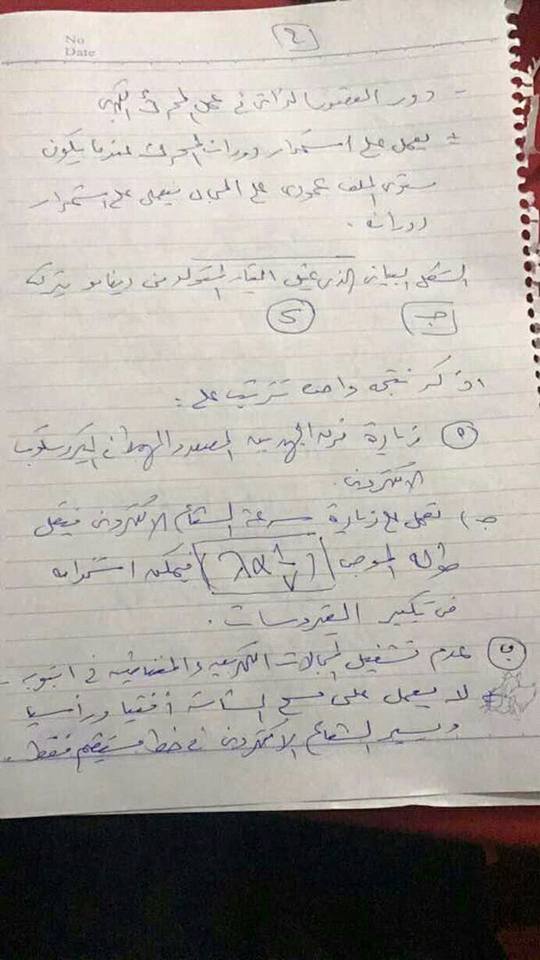 No
Date
2
- دور القصور الذاتى فى عمل المحرك الكهربى
ج يعمل على استمرار دوران المحرك عندما يكون
مستوى الملف عمودى على المجال فيعمل على استمرار
دورانه .
الشكل البيانى الذى عن التيار المتولد من دينامو يتركب
ج 5
اذكر نتيجة واحدة تترتب على :
P زيادة فرق الجهد بين المصعد والمهبط فى الميكروسكوب
الالكترونى .
ج) تعمل على زيادة سرعة الشعاع الالكترونى فيقل
طوله الموجى (λ α 1/V) فيمكن استخدامه
فى تكبير الفيروسات .
ب عدم تشغيل المجالات الكهربيه والمغناطيسيه فى انبوب
لا يعمل على مسح الشاشة أفقيا ورأسيا
ويسير الشعاع الالكترونى فى خط مستقيم فقط .